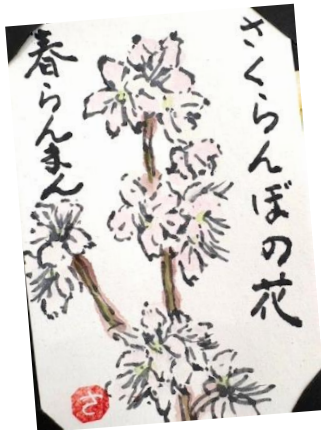 さくらんぼの花
春らんまん
さ